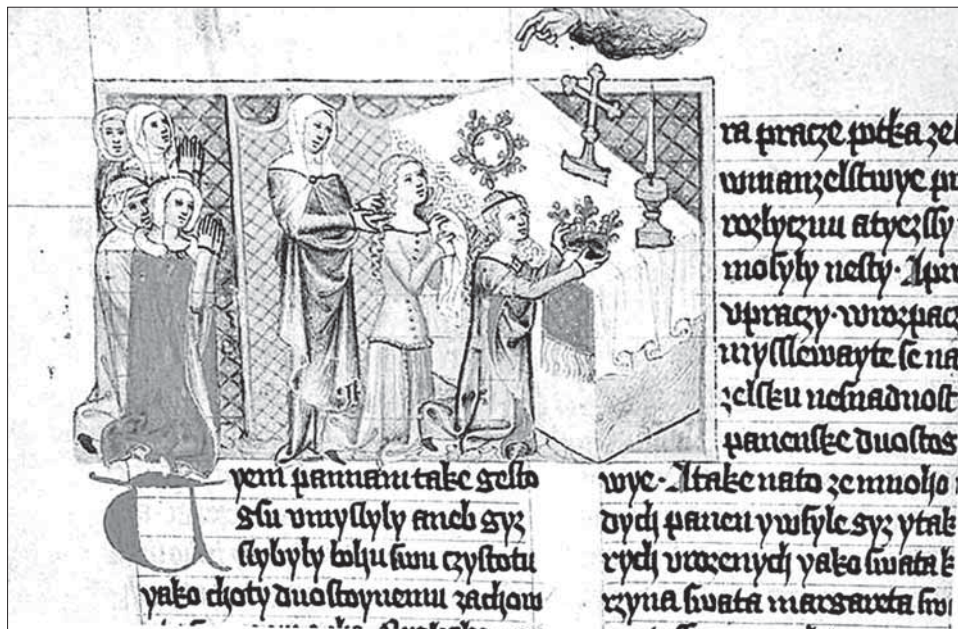 Tyem pannam take gesto
gsu vmyslyly aneb gyz
slybyly bohu swu czystotu
yako choty duostoynemu zachow
ra pracze potka zel
wmanzelstwye pr
rozlycznu atyezssy
mosyly nesty · A pri
vpraczy · wrozpacz
myslewayte se na
zelsku nesnadnost
panenske duostog
wye · A take nato ze mnoho
dych panen ywsyle gyz ytak
rych vrozenych yako swata k
rzyna swata margareta swa